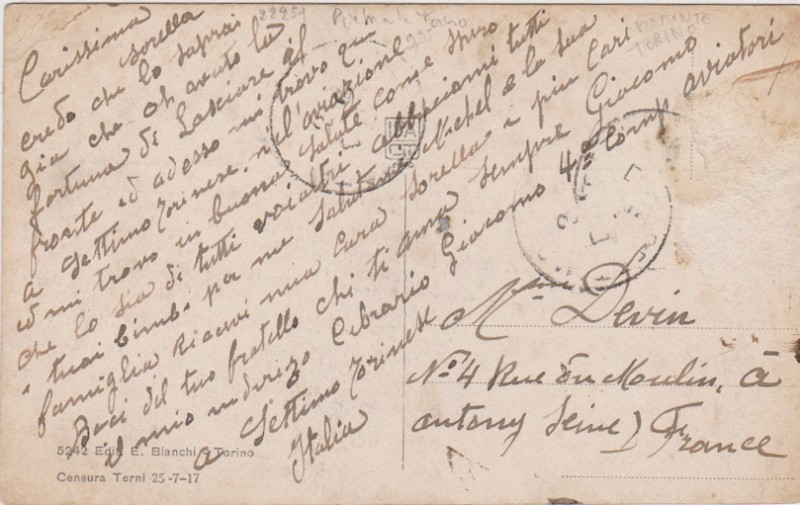 22254
Porino le Torino
PIEMONTE
TORINO
Carissima sorella
credo che lo saprai
già che oh avuto la
fortuna di Lasciare il
fronte ed adesso mi trovo qui
a Settimo Torinese nell'aviazione
ed mi trovo in buona salute come spero
che lo sia di tutti voialtri abbracciami tutti
i tuoi bimbi per me Salutami Michel e la sua
famiglia Ricevi mia cara Sorella i più Cari
Baci del tuo fratello che ti ama sempre Giacomo
il mio indirizo Cibrario Giacomo 4ª Comp aviatori
a Settimo Torinese
Italia
Mme Devin
No 4 Rue du Moulin, à
antony (Seine) France
5242 Ediz. E. Bianchi - Torino
Censura Terni 25-7-17